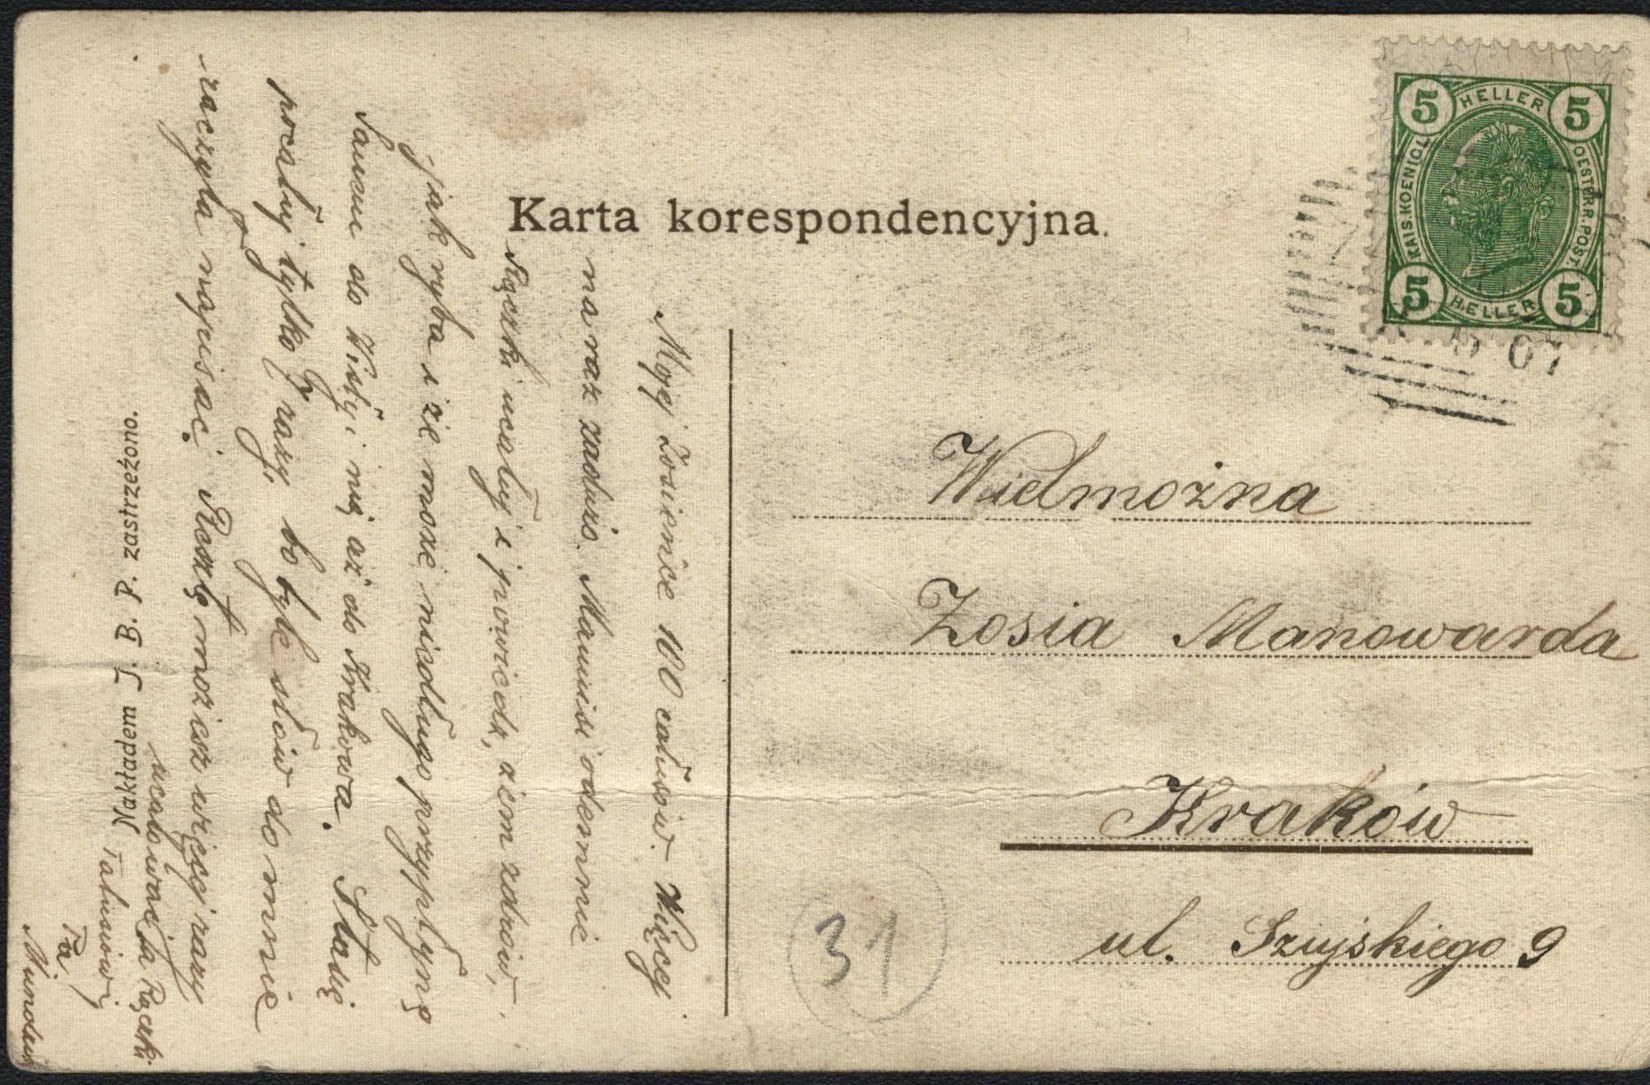 Karta korespondencyjna.
5 HELLER 5
KAIS. KOENIGL. OESTERR. POST.
5 HELLER 5
07
Wielmożna
Zosia Manowarda
Kraków
ul. Szujskiego 9
31
Mojej Zosieńce 100 całusów. Więcej
na raz zadużo. Mamusi odemnie
Rączki ucałuj i powiedz, żem zdrów,
jak ryba i że może niedługo przypłynę
Sanem do Wisły i nią aż do Krakowa. Stasię
pocałuj tylko 3 razy, bo tyle słów do mnie
raczyła napisać. Resztę możesz więcej razy
ucałować ja Rączki
Tatusiowi
Pa
Nakładem J. B. P. zastrzeżono.